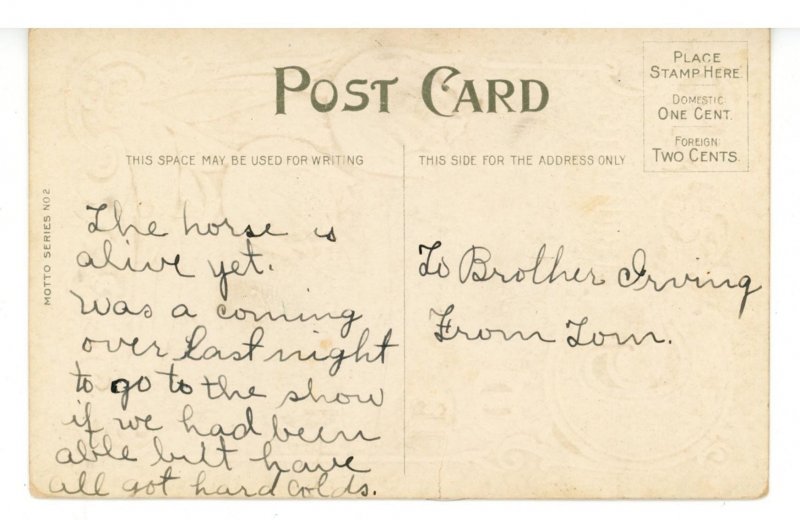 POST CARD
PLACE
STAMP HERE
DOMESTIC
ONE CENT.
FOREIGN
TWO CENTS.
THIS SPACE MAY BE USED FOR WRITING
THIS SIDE FOR THE ADDRESS ONLY
MOTTO SERIES NO 2
The horse is
alive yet.
Was a coming
over last night
to go to the show
if we had been
able but have
all got hard colds.
To Brother Irving
From Tom.